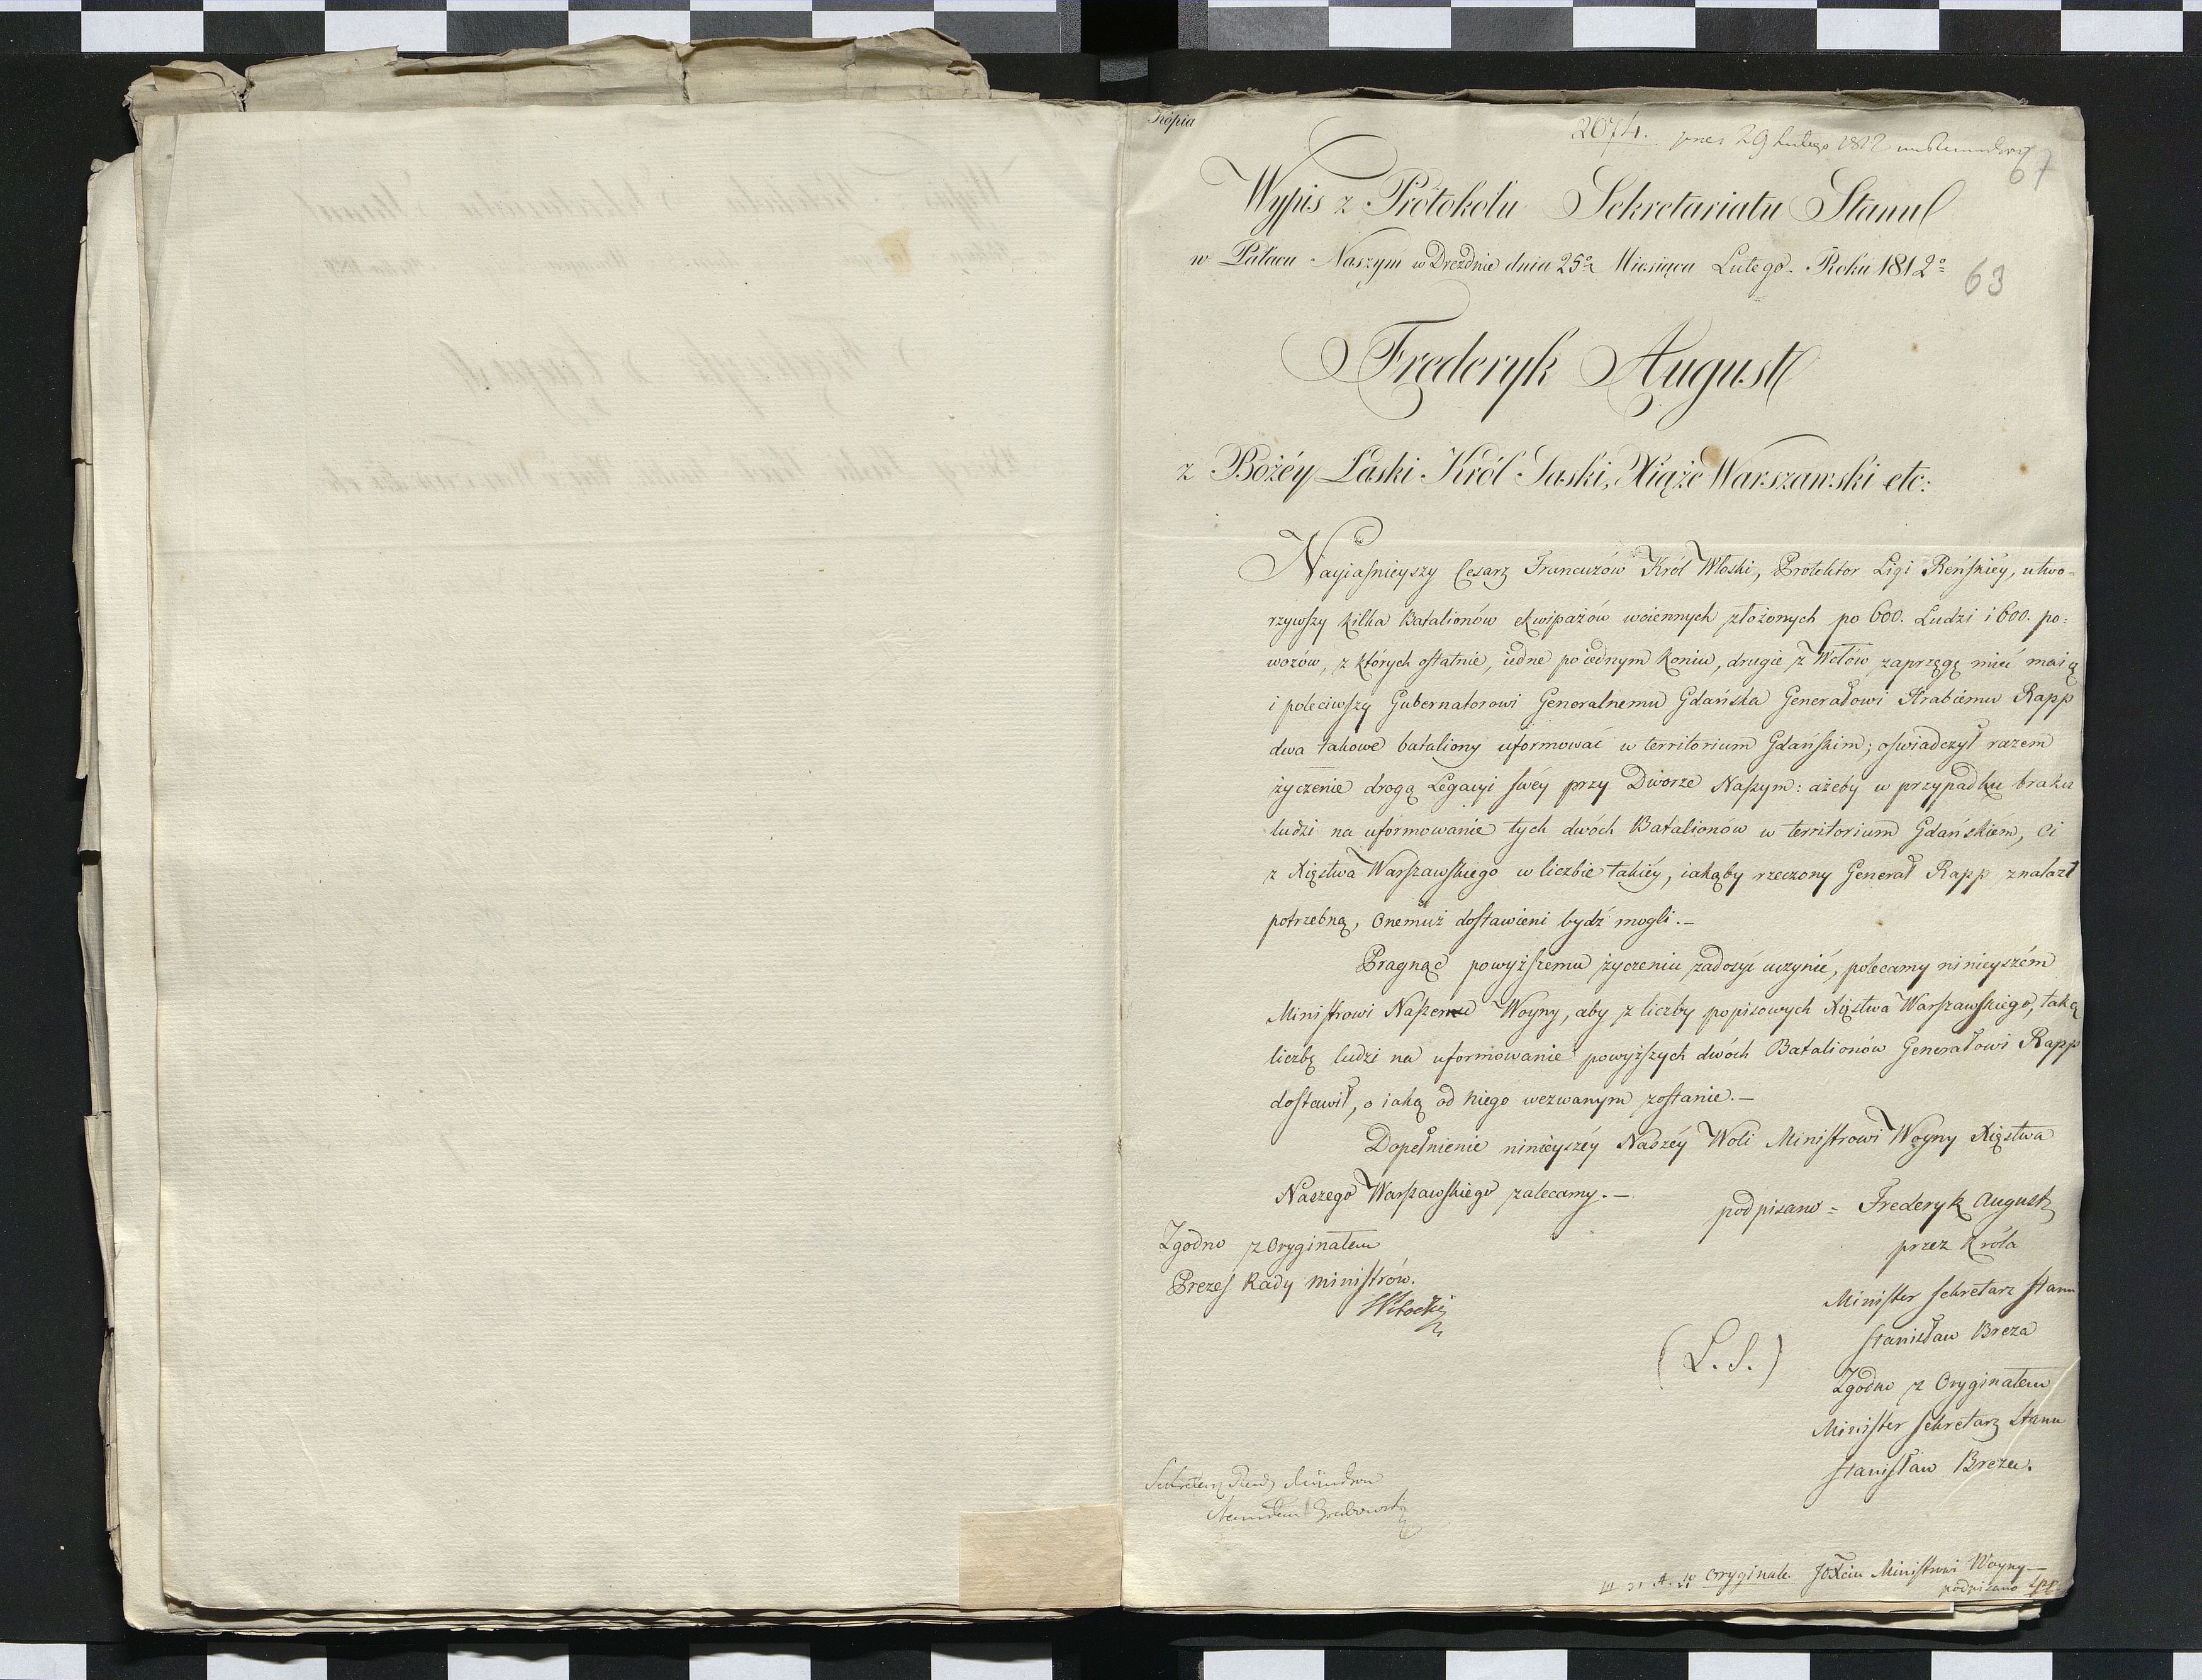 Kopia
2074. pnes 29 Lutego 1812
67
Wypis z Protokołu Sekretariatu Stanu
w Pałacu Naszym w Dreźdnie dnia 25º Miesiąca Lutego. Roku 1812º
63
Frederyk August
z Bożéy Łaski Król Saski, Xiąże Warszawski etc:
Nayiaśnieyszy Cesarz Francuzów Król Włoski, Protektor Ligi Reńskiéy, utwo-
rzywszy kilka Batalionów ekwipażów woiennych złożonych po 600. Ludzi i 600. po-
wozów, z których ostatnie, iedne po iednym koniu, drugie z Wołów zaprzęgę mieć maią
i poleciwszy Gubernatorowi Generalnemu Gdańska Generałowi Hrabiemu Rapp
dwa takowe bataliony uformować w territorium Gdańskim; oświadczył razem
życzenie drogą Legacyi swéy przy Dworze Naszym: ażeby w przypadku braku
ludzi na uformowanie tych dwóch Batalionów w territorium Gdańskiém, Ci
z Xięstwa Warszawskiego w liczbie takiéy, iakąby rzeczony Generał Rapp znalazł
potrzebną, Onemuż dostawieni bydź mogli.—
Pragnąc powyższemu życzeniu zadosyć uczynić, polecamy ninieyszém
Ministrowi Naszemu Woyny, aby z liczby popisowych Xięstwa Warszawskiego, taką
liczbę ludzi na uformowanie powyższych dwóch Batalionów Generałowi Rapp
dostawił, o iaką od niego wezwanym zostanie.—
Dopełnienie ninieyszéy Naszéy Woli Ministrowi Woyny Xięstwa
Naszego Warszawskiego zalecamy.—
podpisano = Frederyk August
przez Króla
Minister Sekretarz Stanu
Stanisław Breza
(L. S.)
Zgodno z Oryginałem
Minister Sekretarz Stanu
Stanisław Breza.
Zgodno z Oryginałem
Prezes Rady Ministrów.
Sekretarz Rady Ministrów
Stanisław Grabowski
w Oryginale JOXciu Ministrowi Woyny—
podpisano